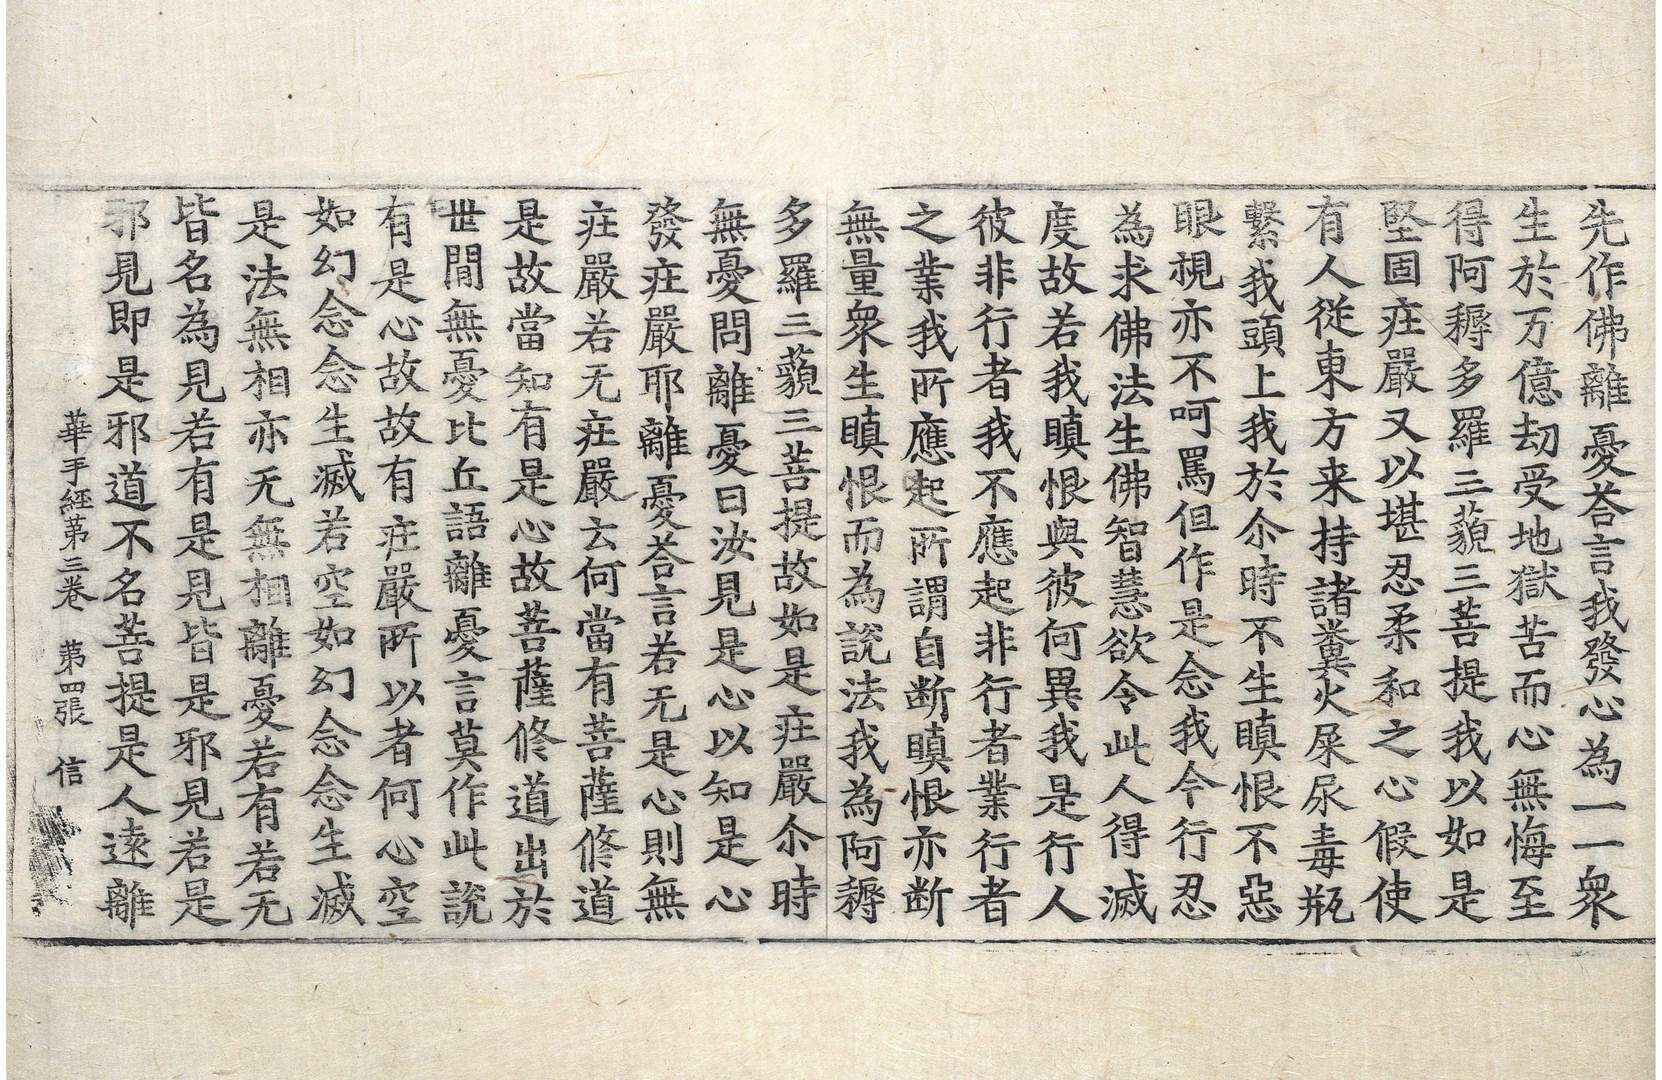 先作佛離憂荅言我發心為一一衆
生於万億劫受地獄苦而心無悔至
得阿耨多羅三藐三菩提我以如是
堅固疘嚴又以堪忍柔和之心假使
有人從東方来持諸糞火屎尿毒瓶
繫我頭上我於尒時不生瞋恨不惡
眼視亦不呵罵但作是念我今行忍
為求佛法生佛智慧欲令此人得滅
度故若我瞋恨與彼何異我是行人
彼非行者我不應起非行者業行者
之業我所應起所謂自断瞋恨亦断
無量衆生瞋恨而為說法我為阿耨
多羅三藐三菩提故如是疘嚴尒時
無憂問離憂曰汝見是心以知是心
發疘嚴耶離憂荅言若无是心則無
疘嚴若无疘嚴云何當有菩薩修道
是故當知有是心故菩薩修道出於
世間無憂比丘語離憂言莫作此說
有是心故故有疘嚴所以者何心空
如幻念念生滅若空如幻念念生滅
是法無相亦无無相離憂若有若无
皆名為見若有是見皆是邪見若是
邪見即是邪道不名菩提是人遠離
華手經第三卷 第四張 信